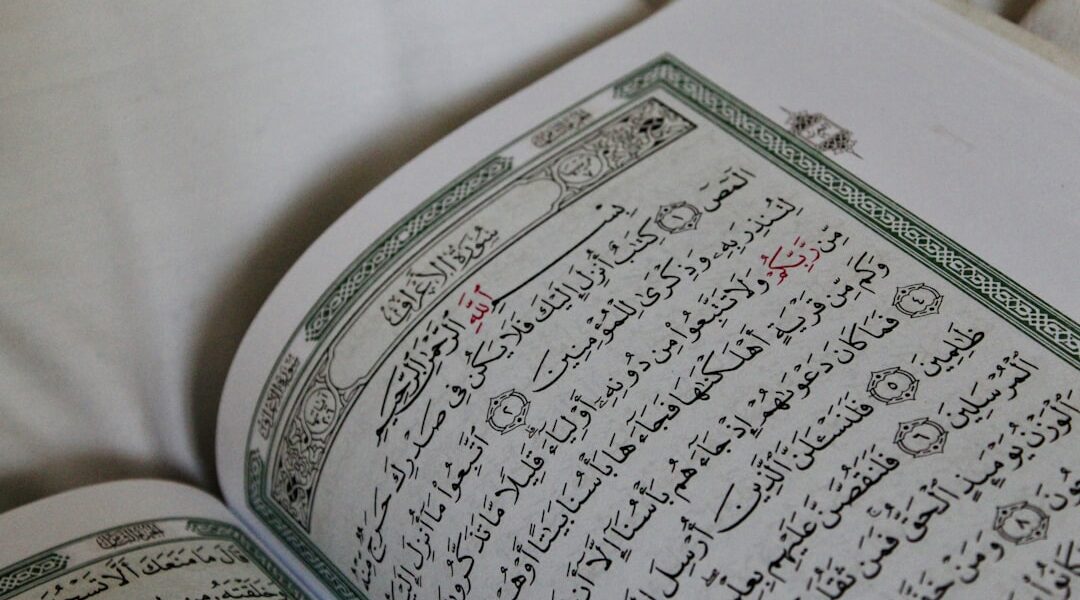 سُورَةُ الأَعْرَافِ
بِسْمِ ٱللَّهِ ٱلرَّحْمَٰنِ ٱلرَّحِيمِ
الٓمٓصٓ ١ كِتَٰبٌ أُنزِلَ إِلَيْكَ فَلَا يَكُن فِى صَدْرِكَ حَرَجٌ مِّنْهُ
لِتُنذِرَ بِهِۦ وَذِكْرَىٰ لِلْمُؤْمِنِينَ ٢ ٱتَّبِعُوا۟ مَآ أُنزِلَ
مِّن رَّبِّكُمْ وَلَا تَتَّبِعُوا۟ مِن دُونِهِۦٓ أَوْلِيَآءَ قَلِيلًا مَّا تَذَكَّرُونَ
وَكَم مِّن قَرْيَةٍ أَهْلَكْنَٰهَا فَجَآءَهَا بَأْسُنَا بَيَٰتًا أَوْ هُمْ
٤ فَمَا كَانَ دَعْوَىٰهُمْ إِذْ جَآءَهُم بَأْسُنَآ إِلَّآ أَن
ظَٰلِمِينَ ٥ فَلَنَسْـَٔلَنَّ ٱلَّذِينَ أُرْسِلَ
ٱلْمُرْسَلِينَ ٦ فَلَنَقُصَّنَّ عَلَيْهِم بِعِلْمٍ
وَٱلْوَزْنُ يَوْمَئِذٍ ٱلْحَقُّ فَمَن ثَقُلَتْ
٨ وَمَنْ خَفَّتْ
سُورَةُ الأَعْرَافِ
قَالَ مَا مَنَعَكَ أَلَّا تَسْجُدَ
خَلَقْتَهُۥ